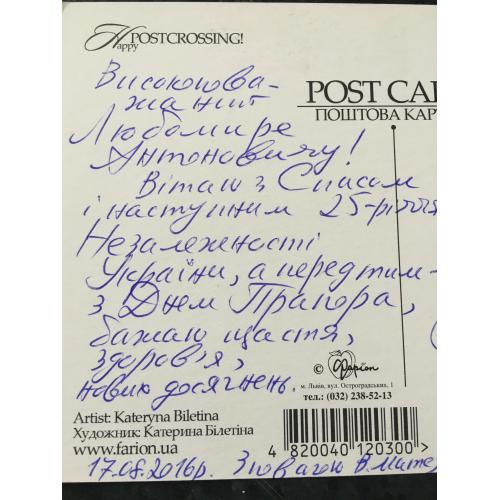 Happy POSTCROSSING!
Високопова-
жаний
Любомире
Антоновичу!
Вітаю з Спасом
і наступним 25-річчя
Незалежності
України, а перед тим-
з Днем Прапора,
бажаю щастя,
здоров'я,
нових досягнень.
POST CA
ПОШТОВА КАР
© Фаріон
м. Львів, вул. Остроградських, 1
тел.: (032) 238-52-13
Artist: Kateryna Biletina
Художник: Катерина Білетіна
www.farion.ua
4 820040 120300 >
17.08.2016р. З повагою В.